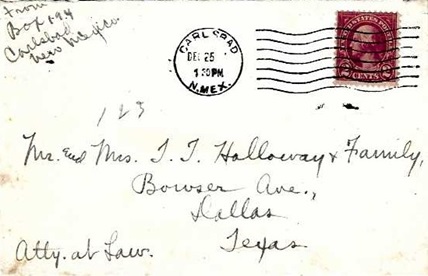 From
Box 194
Carlsbad
New Mexico
CARLSBAD
DEC 25
1 30 PM
N. MEX.
UNITED STATES POSTAGE
2 CENTS 2
123
Mr. and Mrs. T. T. Holloway & Family,
Bowser Ave.,
Dallas
Texas
Atty. at Law.